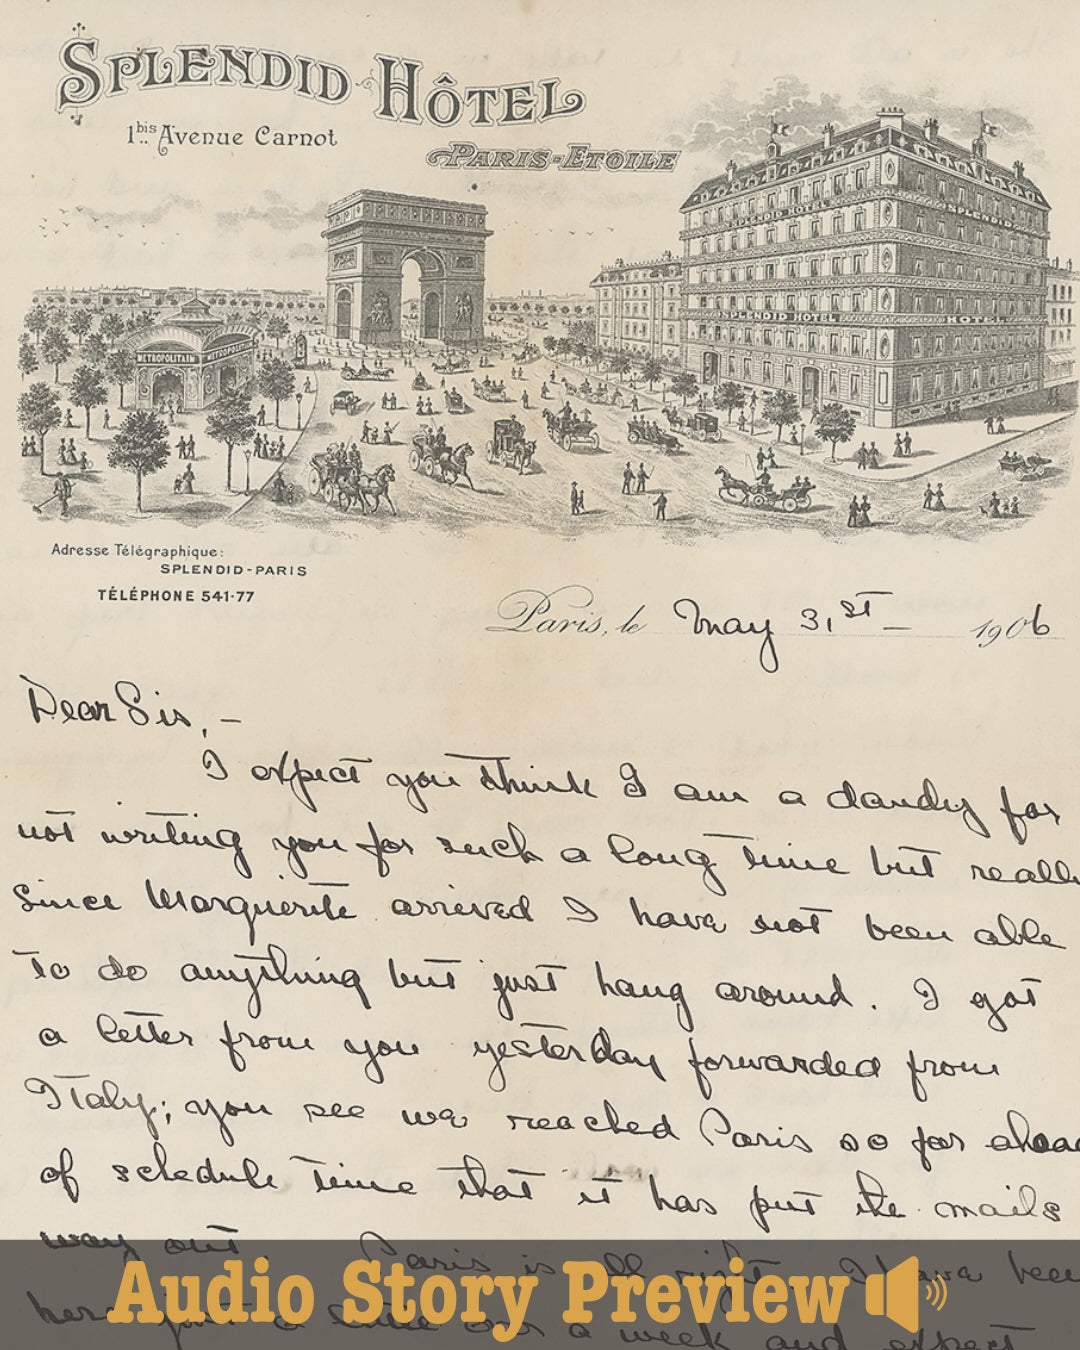 SPLENDID HÔTEL
1bis Avenue Carnot
PARIS-ETOILE
SPLENDID HOTEL
SPLENDID
SPLENDID HOTEL
HOTEL
METROPOLITAIN
METROPOLITAIN
Adresse Télégraphique:
SPLENDID-PARIS
TÉLÉPHONE 541-77
Paris, le May 31st – 1906
Dear Sis, –
I expect you think I am a dandy for
not writing you for such a long time but really
since Marguerite arrived I have not been able
to do anything but just hang around. I got
a letter from you yesterday forwarded from
Italy; you see we reached Paris so far ahead
of schedule time that it has put the mails
way out. Paris is all right. I have been
here just a little over a week and expect
Audio Story Preview